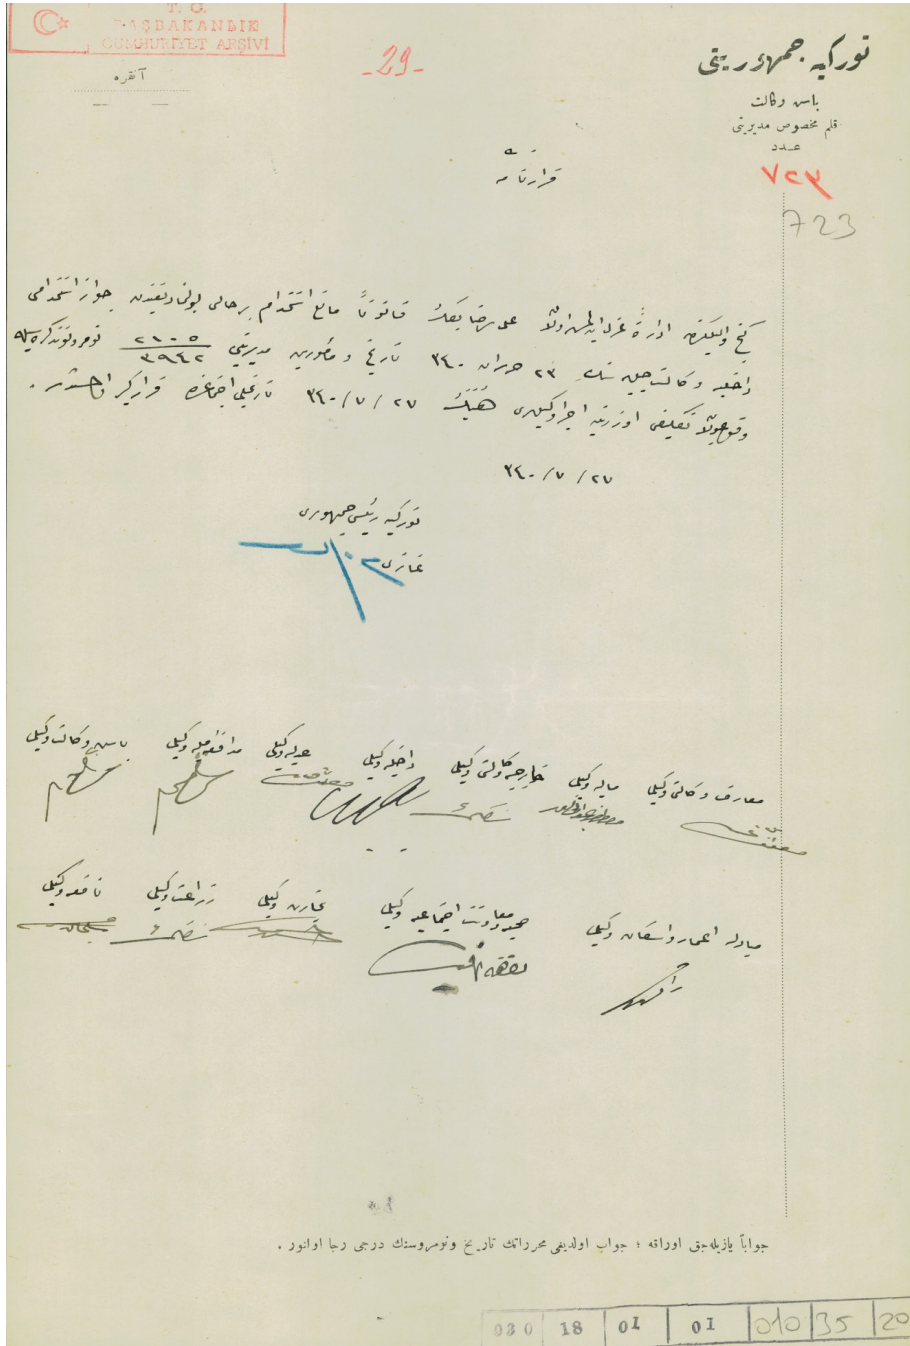 T. C.
BAŞBAKANLIK
CUMHURİYET ARŞİVİ
آنقره
-29-
توركيه جمهوريتى
باش وكالت
قلم مخصوص مديريتى
عدد
٧٢٣
723
قرارنامه
كنج واليلكندن ادارةً عزل ايدلمش اولان على رضا بكك قانوناً مانع استخدام بر حالى بولنماديغندن جواز استخدامى
داخليه وكالت جليله سنك ٢٣ حزيران ٣٤٠ تاريخ و مأمورين مديريتى ٢١٠٠٥ / ٣٩٤٢ نومرولو تذكره سيله
وقوعبولان تكليفى اوزرينه اجرا وكيللرى هيئتنك ٢٧ / ٧ / ٣٤٠ تاريخلى اجتماعنده قرارگير اولمشدر .
٢٧ / ٧ / ٣٤٠
توركيه رئيس جمهورى
غازى
باش وكالت وكيلى
مدافعه مليه وكيلى
عدليه وكيلى
داخليه وكيلى
خارجيه وكالتى وكيلى
ماليه وكيلى
معارف وكالتى وكيلى
نافعه وكيلى
زراعت وكيلى
تجارت وكيلى
صحيه و معاونت اجتماعيه وكيلى
مبادله اعمار و اسكان وكيلى
جواباً يازيله جق اوراقه ؛ جواب اولديغى محرراتك تاريخ ونومروسنك درجى رجا اولنور .
030 18 01 01 010 35 20